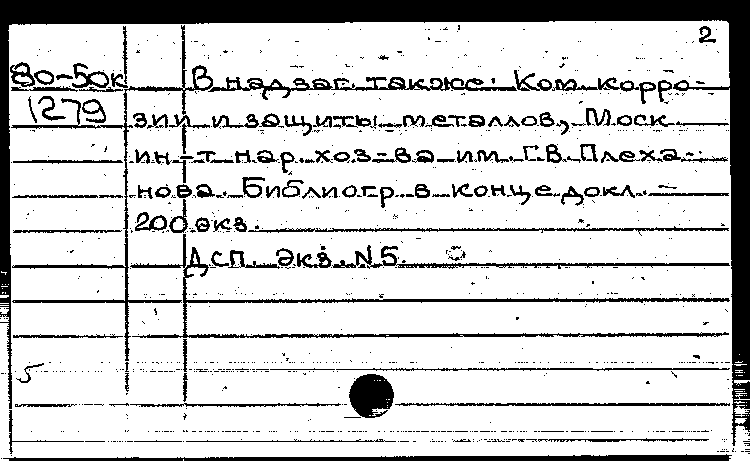 2
80-50к В надзаг. также: Ком. корро-
1279 зии и защиты металлов, Моск.
ин-т нар. хоз-ва им. Г.В. Плеха-
нова. Библиогр. в конце докл. -
200 экз.
Дсп. Экз. N5.
5